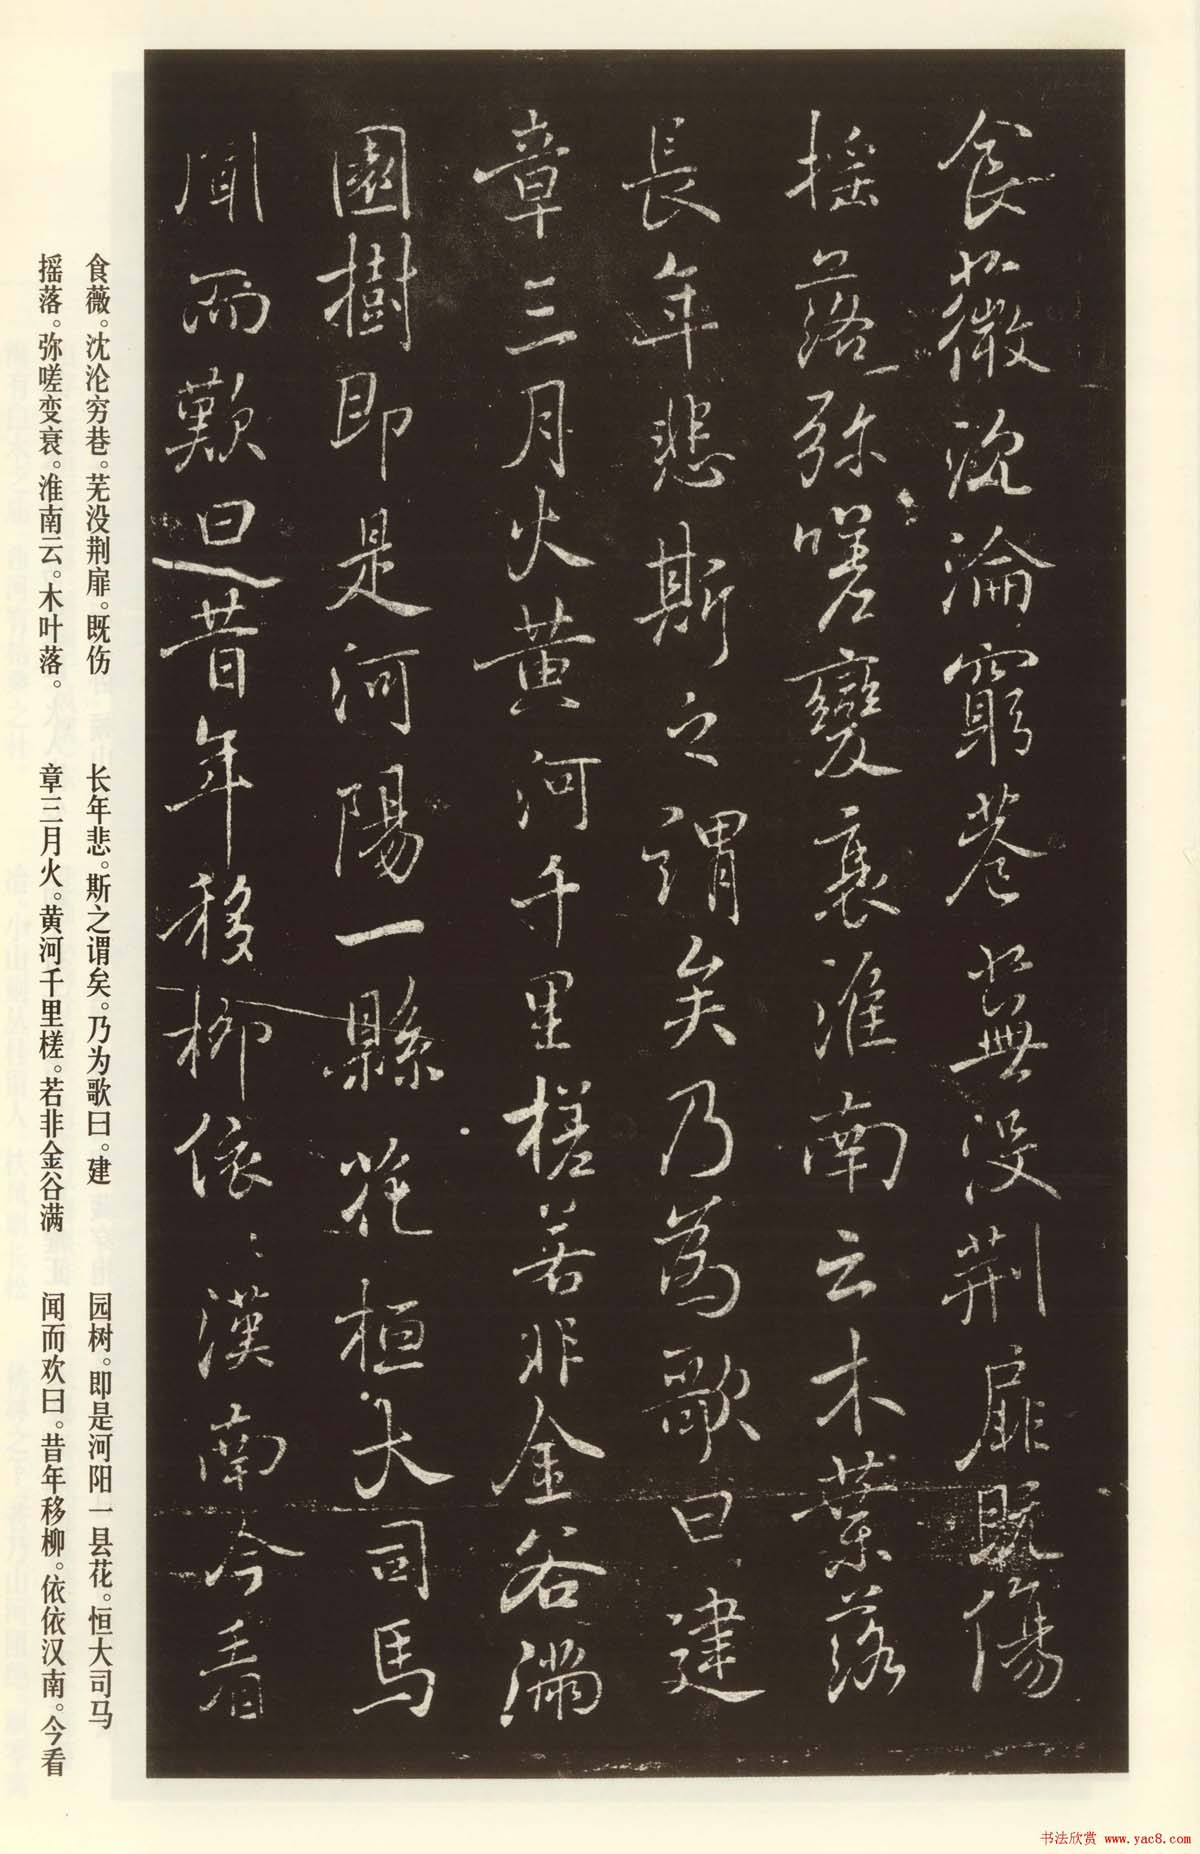 食薇沈淪窮巷蕪沒荆扉既傷
揺落弥嗟變衰淮南云木葉落
長年悲斯之謂矣乃為歌曰建
章三月火黄河千里槎若非金谷満
園樹即是河陽一縣花桓大司馬
聞而歎曰昔年移柳依〻漢南今看
食薇。沈沦穷巷。芜没荆扉。既伤
摇落。弥嗟变衰。淮南云。木叶落。
长年悲。斯之谓矣。乃为歌曰。建
章三月火。黄河千里槎。若非金谷满
园树。即是河阳一县花。恒大司马
闻而欢曰。昔年移柳。依依汉南。今看
书法欣赏 www.yac8.com